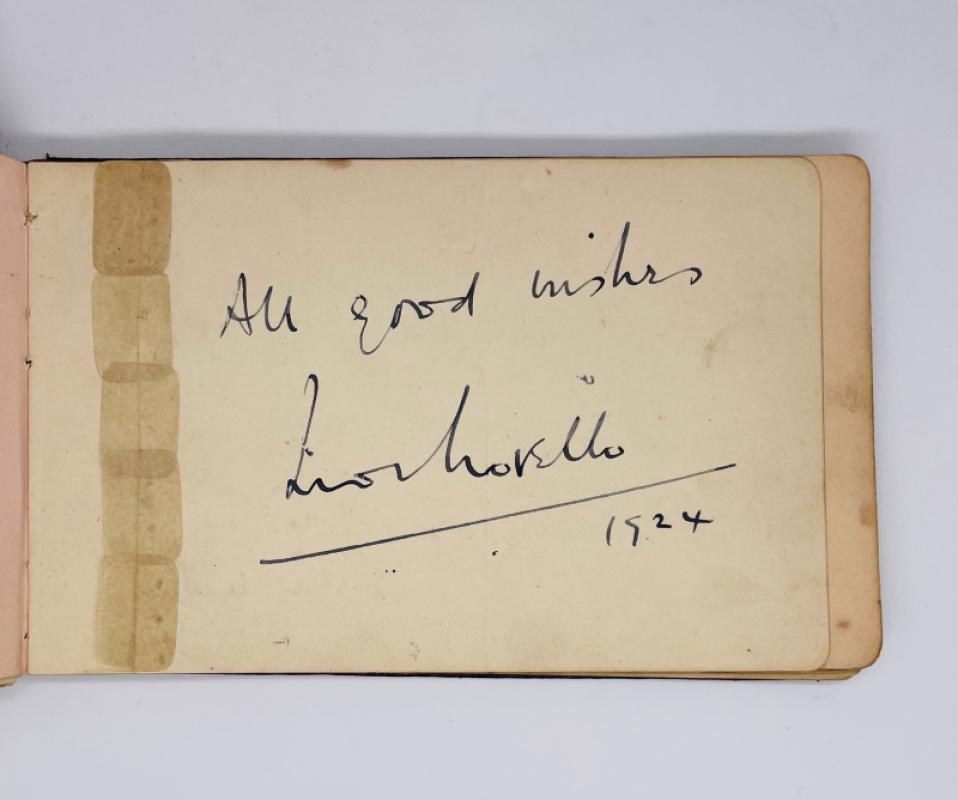 All good wishes
Ivor Novello
1924